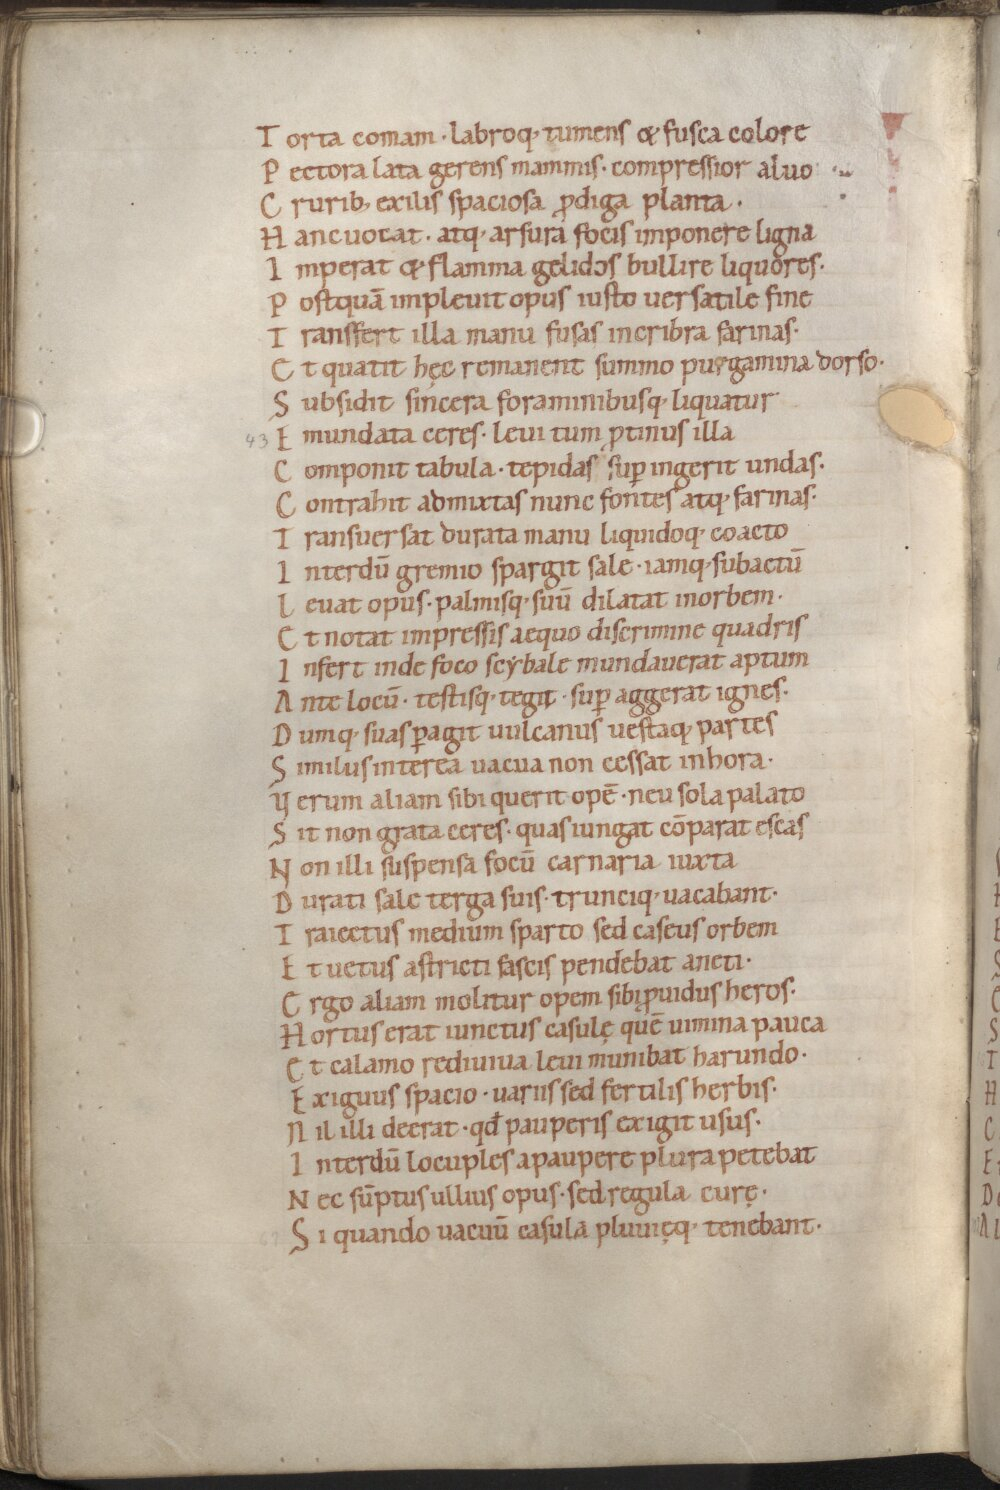 Torta comam · labroq; tumens & fusca colore
Pectora lata gerens mammis · compressior aluo
Crurib; exilis spaciosa ꝓdiga planta ·
Hanc uocat · atq; arsura focis imponere ligna
Imperat & flamma gelidos bullire liquores ·
Postquā impleuit opus iusto uersatile fine
Transfert illa manu fusas incribra farinas ·
Et quatit hęc remanent summo purgamina dorso ·
Subsidit sincera foraminibusq; liquatur
43 Emundata ceres · leui tum ꝓtinus illa
Componit tabula · tepidas suꝑ ingerit undas ·
Contrahit admixtas nunc fontes atq; farinas ·
Transuersat durata manu liquidoq; coacto
Interdū gremio spargit sale · iamq; subactū
Leuat opus · palmisq; suū dilatat inorbem ·
Et notat impressis aequo discrimine quadris
Infert inde foco scẏbale mundauerat aptum
Ante locū · testisq; tegit · suꝑ aggerat ignes ·
Dumq; suas ꝑagit uulcanus uestaq; partes
Similus interea uacua non cessat inhora ·
Verum aliam sibi querit opē · neu sola palato
Sit non grata ceres · quas iungat cōparat escas
Non illi suspensa focū carnaria iuxta
Durati sale terga suis · trunciq; uacabant ·
Traiectus medium sparto sed caseus orbem
Et uetus astricti fascis pendebat aneti ·
Ergo aliam molitur opem sibi ꝓuidus heros ·
Hortus erat iunctus casulę quē uimina pauca
Et calamo rediuiua leui munibat harundo ·
Exiguus spacio · uariis sed fertilis herbis ·
Nil illi deerat · qđ pauperis exigit usus ·
Interdū locuples apaupere plura petebat
Nec sūptus ullius opus · sed regula curę ·
67 Si quando uacuū casula pluuięq; tenebant ·